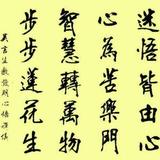 迷悟皆由心
心為苦樂門
智慧轉萬物
步步蓮花生
吳言生